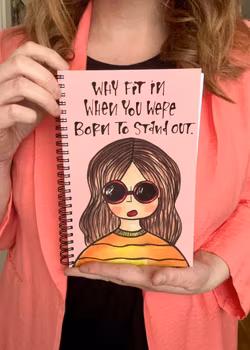 WHY FIT IN
WHEN YOU WERE
BORN TO STAND OUT.